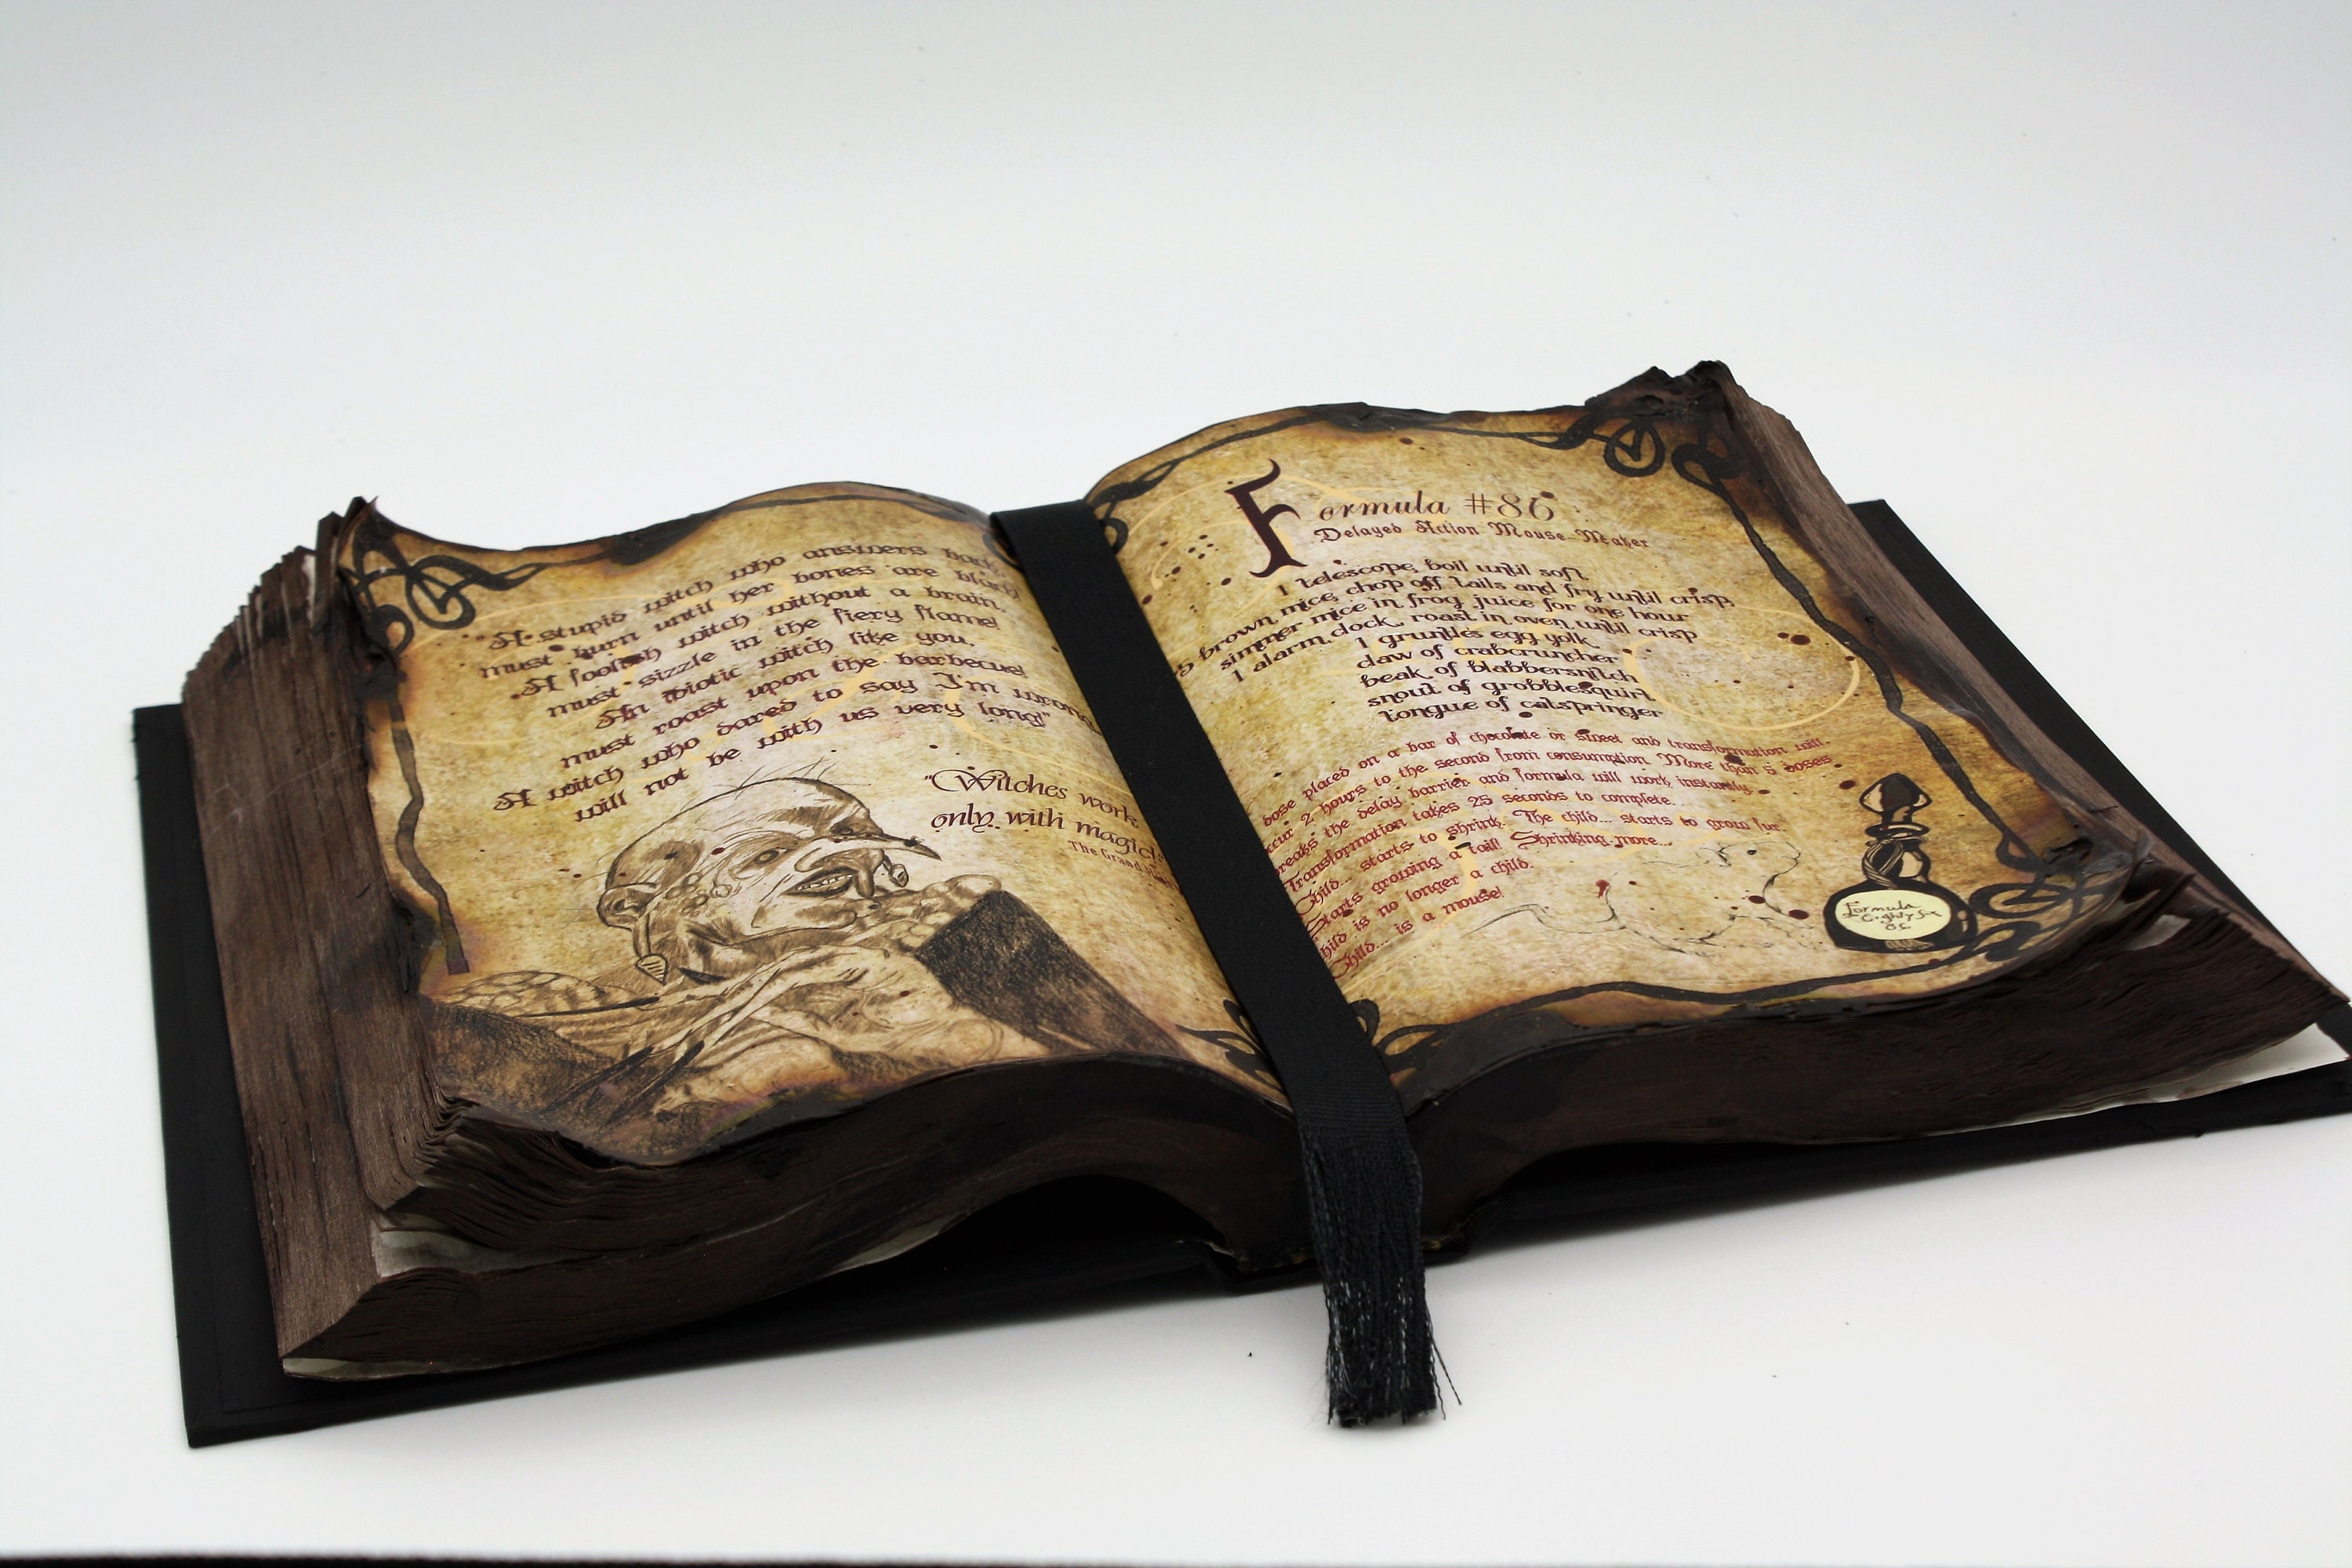 "A stupid witch who answers back
must burn until her bones are black
A foolish witch without a brain,
must sizzle in the fiery flame!
An idiotic witch like you.
must roast upon the barbecue!
A witch who dared to say I'm wrong
will not be with us very long!"
"Witches work
only with magic!"
The Grand
Formula #86
Delayed Action Mouse-Maker
1 telescope, boil until soft.
brown mice, chop off tails and fry until crisp,
simmer mice in frog juice for one hour
1 alarm clock, roast in oven until crisp
1 gruntles egg yolk
claw of crabcruncher
beak of blabbersnitch
snout of grobblesquirt
tongue of catspringer
dose placed on a bar of chocolate or sweet and transformation will
occur 2 hours to the second from consumption. More than 5 doses
breaks the delay barrier and formula will work instantly.
Transformation takes 25 seconds to complete...
Child... starts to shrink. The child... starts to grow fur.
Starts growing a tail! Shrinking more...
Child is no longer a child.
Child... is a mouse!
Formula
Eighty Six
86